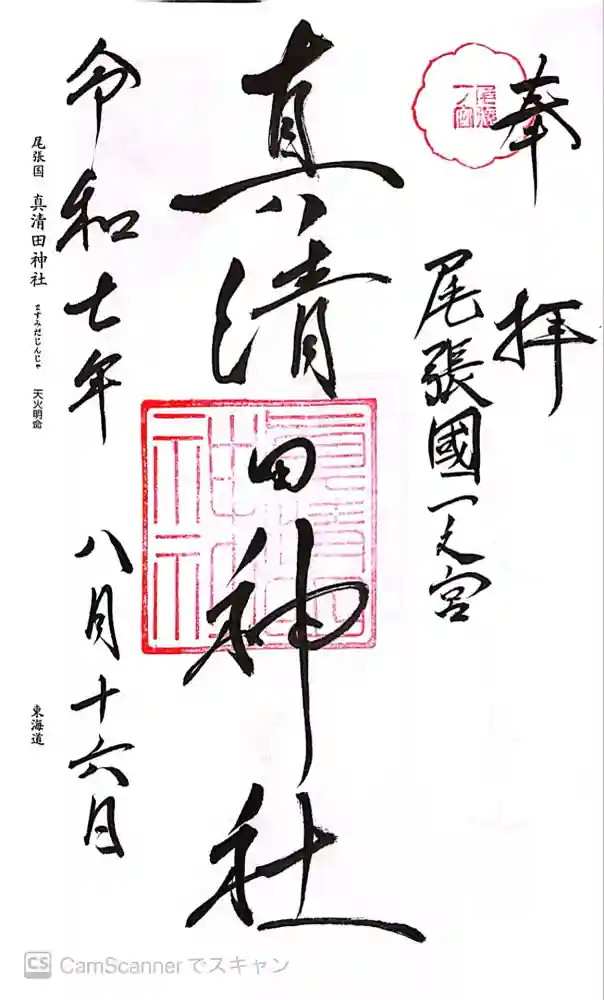 奉拝
尾張
一宮
尾張國一之宮
真清田神社
令和七年 八月十六日
尾張国 真清田神社 ますみだじんじゃ 天火明命 東海道
CS CamScannerでスキャン